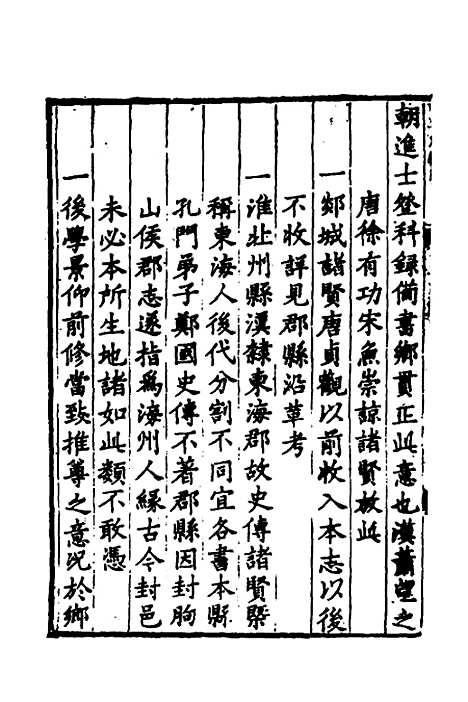 朝進士登科録備書鄉貫正此意也漢蕭望之
唐徐有功宋魚崇諒諸賢放此
一郯城諸賢唐貞觀以前收入本志以後
不收詳見郡縣沿革考
一淮北州縣漢隸東海郡故史傳諸賢槩
稱東海人後代分割不同宜各書本縣
孔門弟子鄭國史傳不著郡縣因封朐
山侯郡志遂指爲海州人緣古今封邑
未必本所生地諸如此類不敢憑
一後學景仰前修當致推尊之意况於鄉